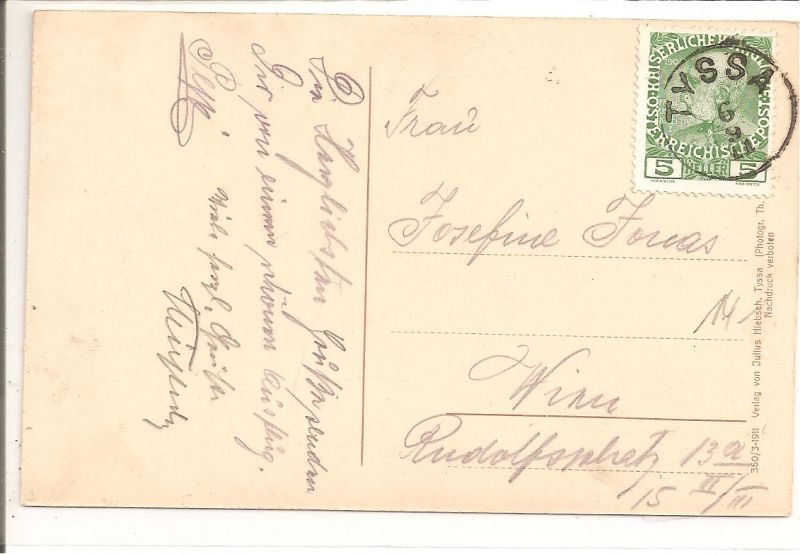 Die Herzlichsten Grüße senden
Dir von einem schönen Ausflug.
Viele herzl. Grüße
Frau
Josefine Jonas
Wien
Rudolfsplatz 13a
15 II/III
14
KAISERLICHE KÖNIGLICHE
ÖSTERREICHISCHE POST
5 HELLER 5
TYSSA
6 9 11
360/3-1911 Verlag von Julius Hiebsch, Tyssa (Photogr. Th.
Nachdruck verboten